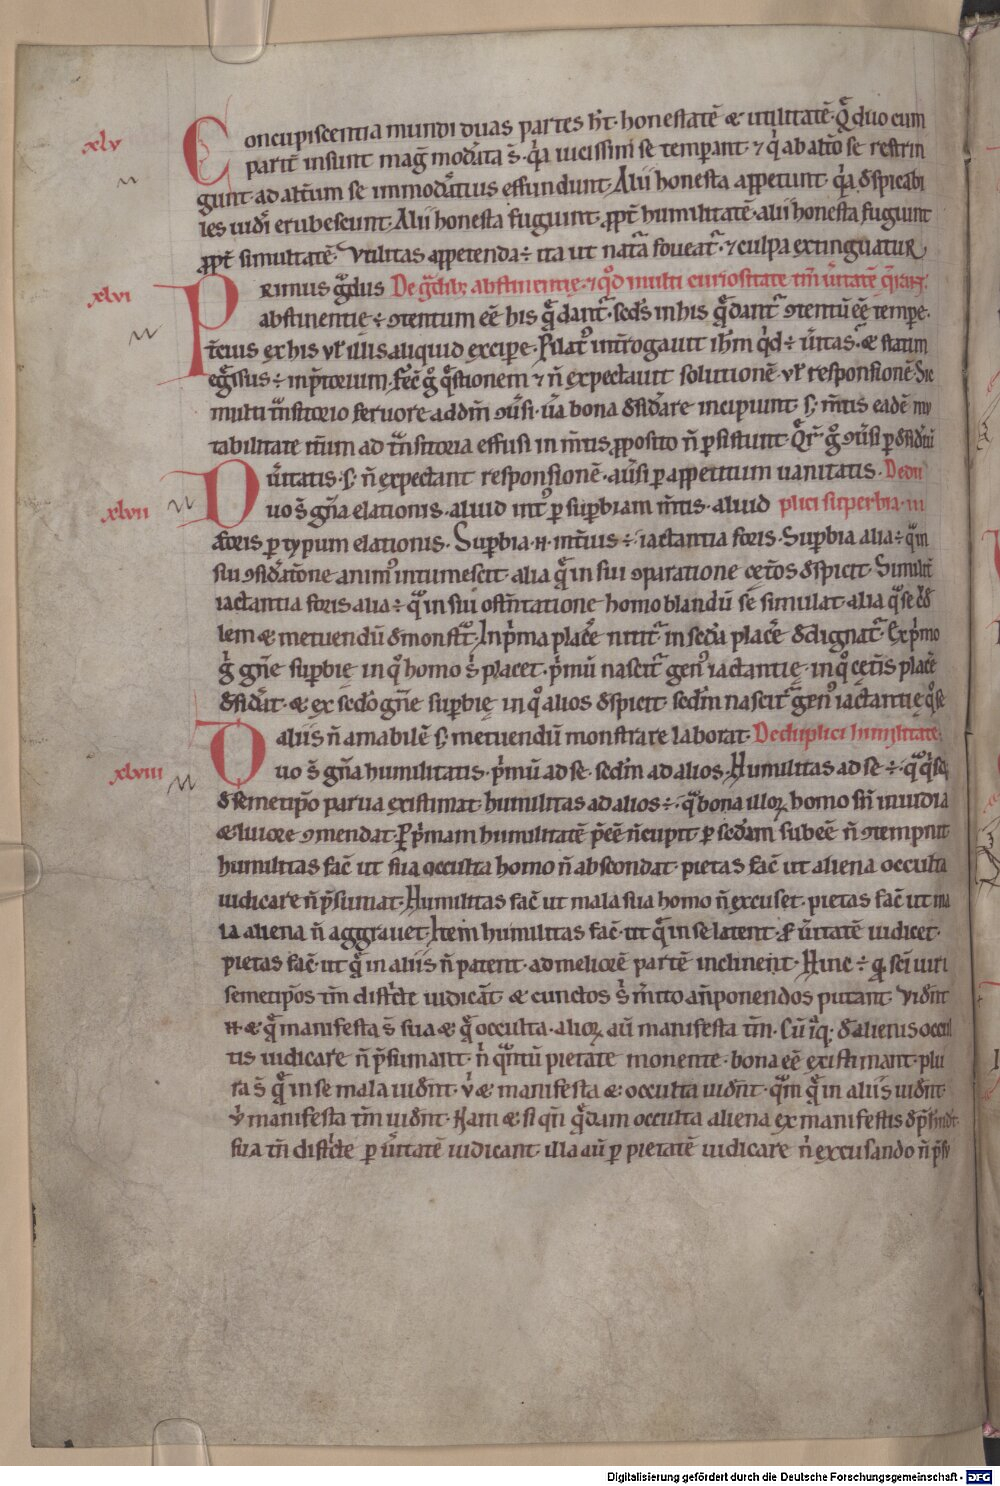 xlv Concupiscentia mundi duas partes hn̄t· honestatē & utilitatē· Q̄ duo cum
partit̄ insunt mag̅ mod̄ata s̄· q̄a uicissim se temperant· ⁊ q̄ ab alt̄o se restrin
gunt· ad alt̄um se immod̄atius effundunt· Alii honesta appetunt· q̄a d̄spicabi
les uid̄i erubescunt· Alii honesta fugiunt· ꝓpt̄ humilitatē· alii honesta fugiunt
ꝓpt̄ simultatē· Vtilitas appetenda ÷ ita ut nat̄a foueat̄· ⁊ culpa extinguatur
xlvi Primus g̅dus De g̅dib; abstinentię· ⁊ qd̄ multi curiositate tm̄ ūitatē q̄rant·
abstinentię ÷ ꝯtentum eē his q̄ dant̄· scd̄s in his q̄ dant̄ ꝯtentū eē tempe·
t̄cius ex his ul̄ illis aliquid excipe· Pilat᷒ int̄rogauit ih̄m qd̄ ÷ ūitas· & statim
eg̅ssus ÷ in p̄toꝛium· fec̄ g̊ q̄stionem ⁊ n̄ expectauit solutionē ul̄ responsionē· Sic
multi t̄nsitoꝛio feruore ad dm̄ ꝯūsi· ūa bona d̄sid̄are incipiunt· s; m̄tis eadē mu
tabilitate it̄um ad t̄nsitoria effusi in m̄tis ꝓposito n̄ ꝑsistunt· Q̄r̄ g̊ ꝯūsi ꝑ d̄sid̄iū
ūitatis· s; n̄ expectant responsionē· aūsi ꝑ appetitum uanitatis· De du
xlvii Duo s̄ gn̄a elationis· aliud int᷒ ꝑ suꝑbiam m̄tis· aliud plici superbia· in
ext̄ioris ꝑ typum elationis· Suꝑbia· n̄· int̄ius ÷· iactantia foris· Suꝑbia alia ÷ q̄ in
sui ꝯsid̄at̄one anim᷒ intumescit· alia q̄ in sui ꝯparatione cet̄os d̄spicit· Similit̄
iactantia foris alia ÷ q̄ in sui ostn̄tatione homo blandū sē simulat· alia q̄ se c̄d̄
lem & metuendū d̄monst̄t· In p̄ma placē nitit̄ in sed̄a placē d̄dignat̄· Ex p̄mo
g̊ gn̄e suꝑbie in q̊ homo s̄ placet· p̄mū nascit̄ gen᷒ iactantię· in q̊ cet̄is placē
d̄sid̄at· & ex scd̄o gn̄e suꝑbię in q̊ alios d̄spicit· scd̄m nascit̄ gen᷒ iactantię q̊ se
aliis n̄ amabilē s; metuendū monstrare laborat· De duplici humilitate·
xlviii Duo s̄ gn̄a humilitatis· p̄mū ad se· scd̄m ad alios· Humilitas ad se ÷· q̄ q̄sq;
d̄ semetip̄o parua existimat· humilitas ad alios ÷· q̄ bona illoꝝ homo sn̄ inuidia
& liuore ꝯmendat· Ꝑ p̄mam humilitatē p̄eē n̄ cupit· ꝑ scd̄am subeē n̄ ꝯtempnit·
humilitas fac̄ ut sua occulta homo n̄ abscondat· pietas fac̄ ut aliena occulta
iudicare n̄ p̄sumat· Humilitas fac̄ ut mala sua homo n̄ excuset· pietas fac̄ ut ma
la aliena n̄ aggrauet· Item humilitas fac̄· ut q̄ in se latent· ꝑ ūitatē iudicet·
pietas fac̄· ut q̄ in aliis n̄ patent· ad meliorē partē inclinent· Hinc ÷ qd̄ sc̄i uiri
semetip̄os tm̄ dist̄cte iudicāt· & cunctos s̄ m̄ito an̄ponendos putant· Vid̄nt
n̄· & q̄ manifesta s̄ sua & q̄ occulta· alioꝝ aū manifesta tm̄· Cū itaq; d̄ alienis occul
tis iudicare n̄ p̄sumant· n̄ q̄ntū pietate monente· bona eē existimant· plu
ra s̄ q̄ in se mala uid̄nt· ubi & manifesta & occulta uid̄nt· q̄m q̄ in aliis uid̄nt·
ubi manifesta tm̄ uid̄nt· Nam & si qn̄ q̄dam occulta aliena ex manifestis d̄p̄hnd̄t·
sua tn̄ dist̄cte ꝑ ūitatē iudicant· illa aū ꝑ pietatē iudicare n̄ excusando n̄ p̄su
Digitalisierung gefördert durch die Deutsche Forschungsgemeinschaft - DFG